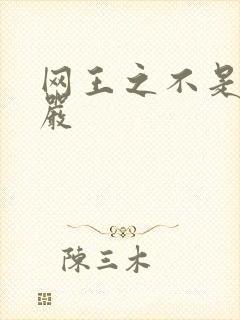 网王之不是
嚴
陳三木